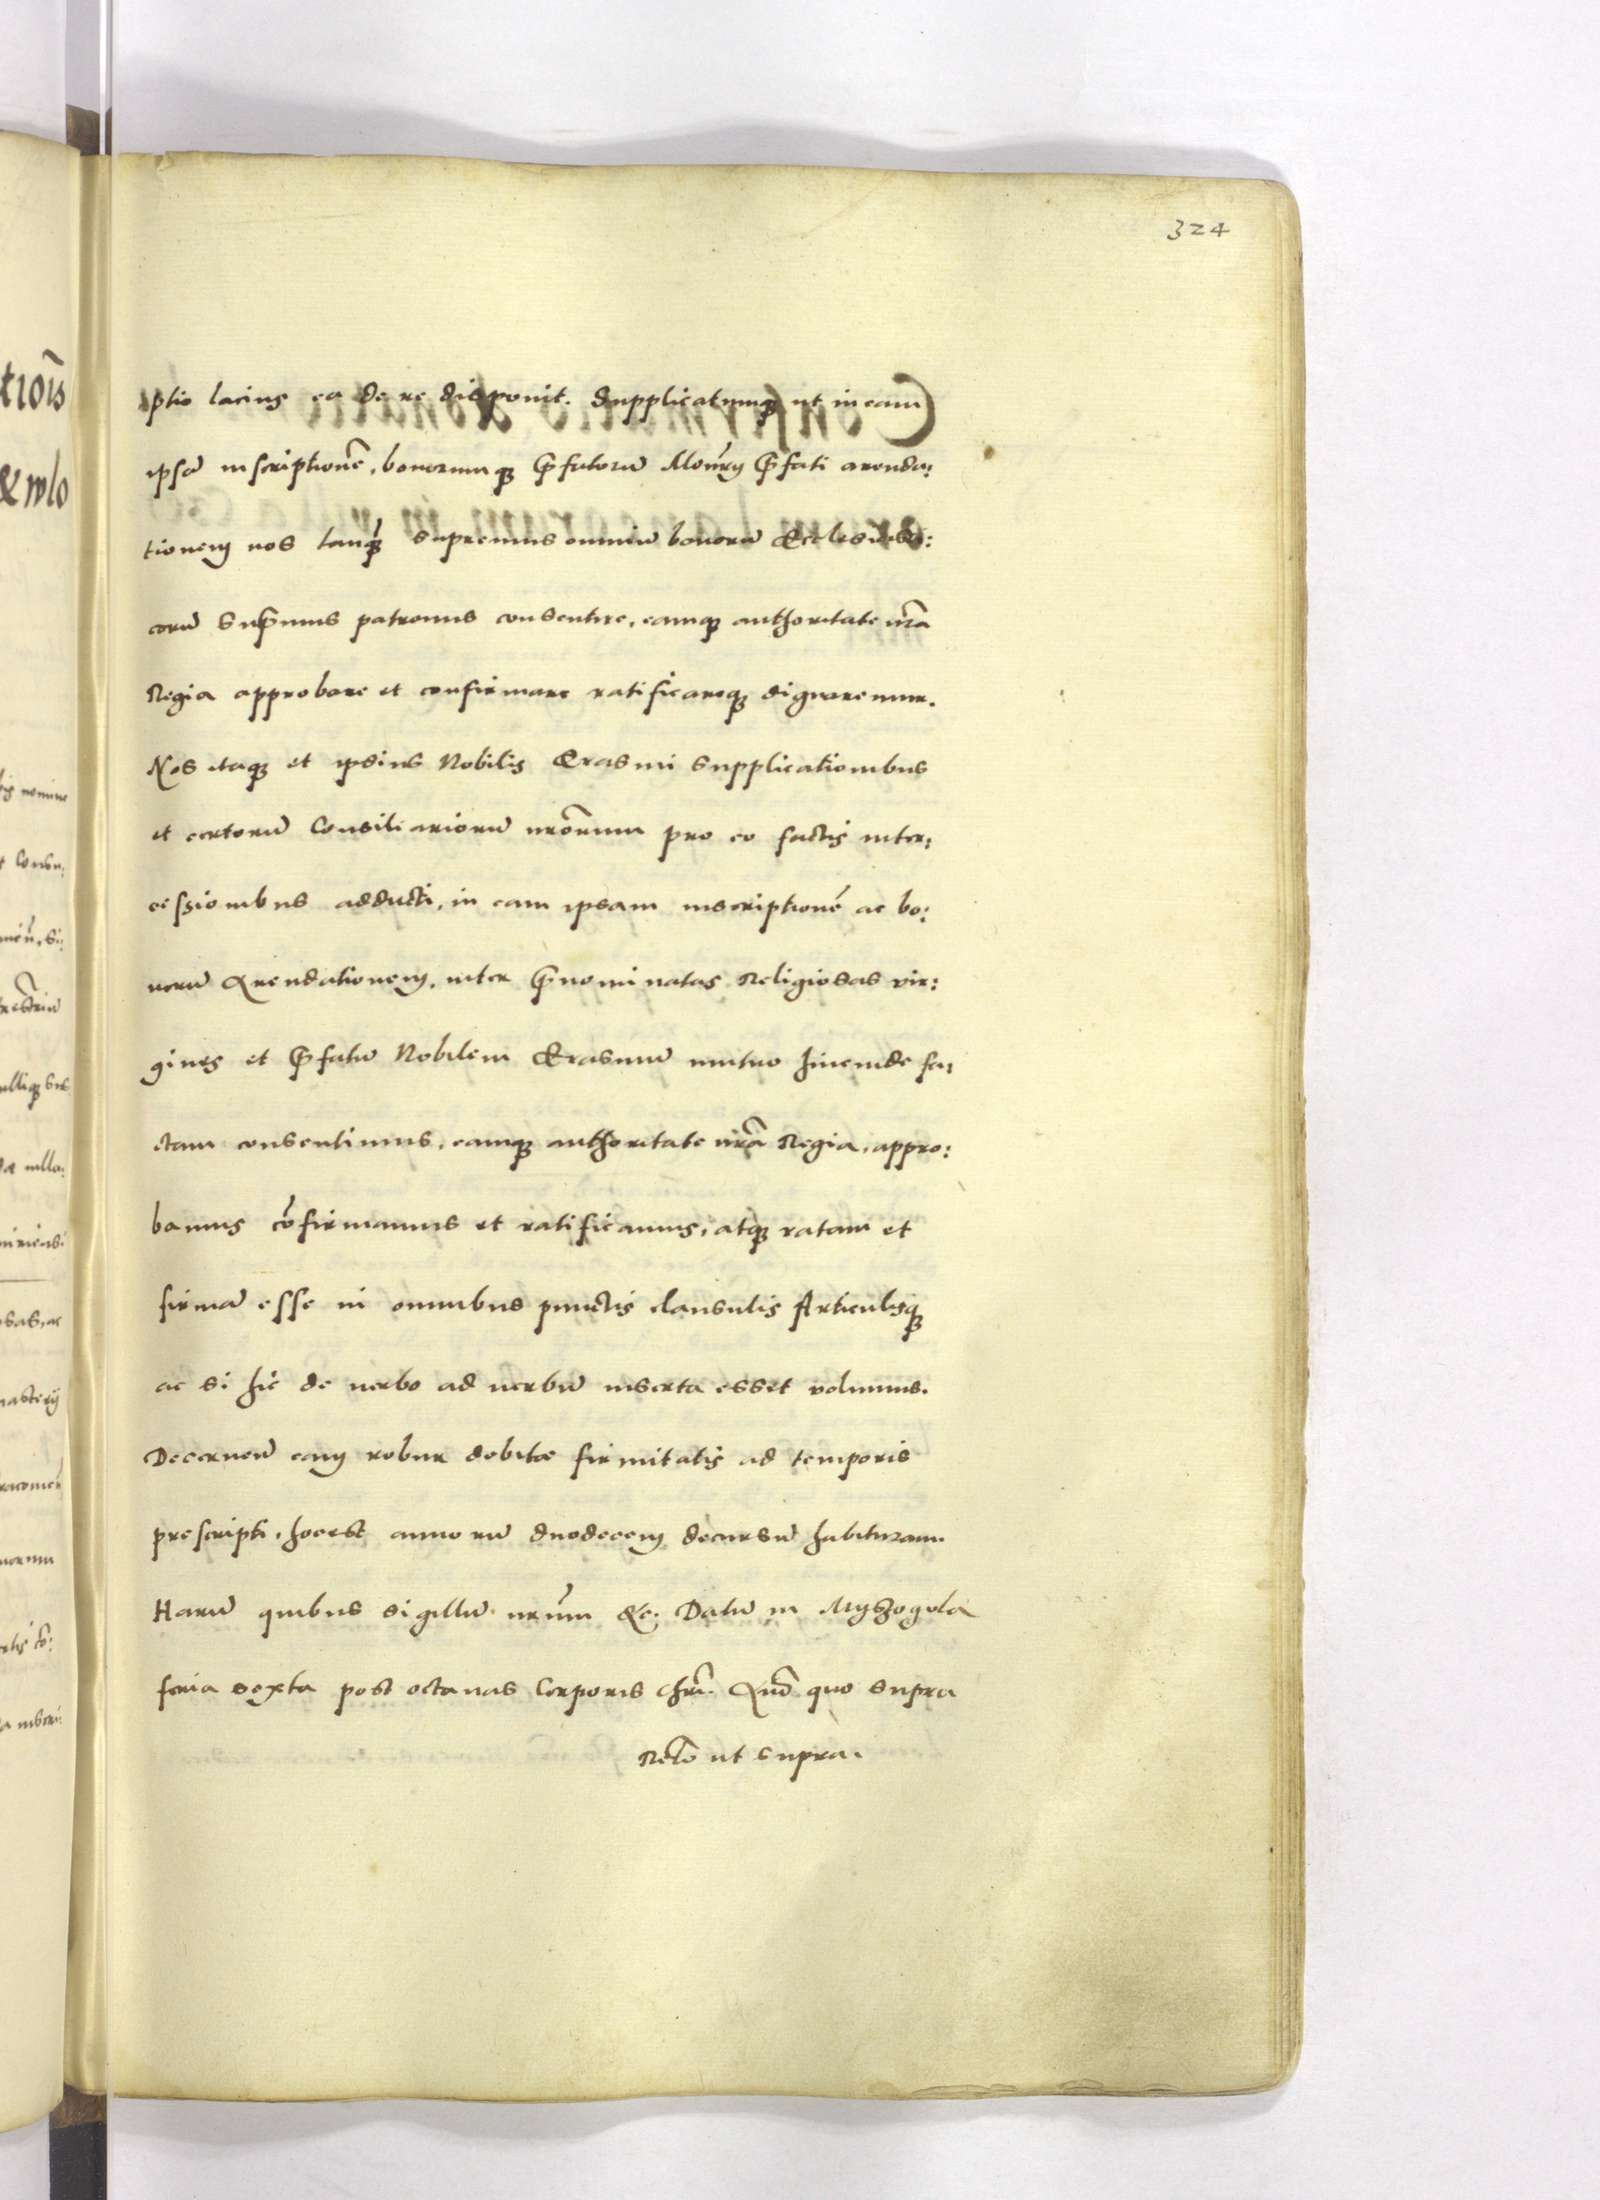 324
ptio lacius ea de re disponit. Supplicatumq ut in eam
ipsā inscriptionē, bonorumq p̄fatorū Mon̄rij p̄fati arenda:
tionem nos tanq̄ supremus omniū bonorū Ecclesiasti:
corū sup̄mus patronus consentire, eamq authoritate nr̄a
Regia approbare et confirmare ratificareq dignaremur.
Nos itaq et ipsius Nobilis Erasmi supplicationibus
et certorū Consiliariorū nr̄orum pro eo factis inter:
cessionibus adducti, in eam ipsam inscriptionē ac bo:
norū Arendationem, inter p̄nominatas Religiosas vir:
gines et p̄fatū Nobilem Erasmū mutuo hincinde fa:
ctam consentimus, eamq authoritate nr̄a Regia, appro:
bamus cōfirmamus et ratificamus, atq ratam et
firmā esse in omnibus punctis clausulis Articulisq
ac si hic de verbo ad verbū inserta esset volumus.
Decernen̄ eam robur debitae firmitatis ad temporis
prescripti, hocest annorū duodecem decursū habituram.
Harū quibus sigillū nr̄um &c. Datū in Myszogola
feria sexta post octauas Corporis Chr̄i. An̄o quo supra
Relō ut supra.